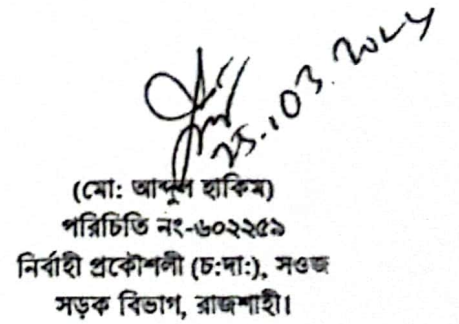 25.03.2024
(মো: আব্দুল হাকিম)
পরিচিতি নং-৬০২২৫৯
নির্বাহী প্রকৌশলী (চ:দা:), সওজ
সড়ক বিভাগ, রাজশাহী।